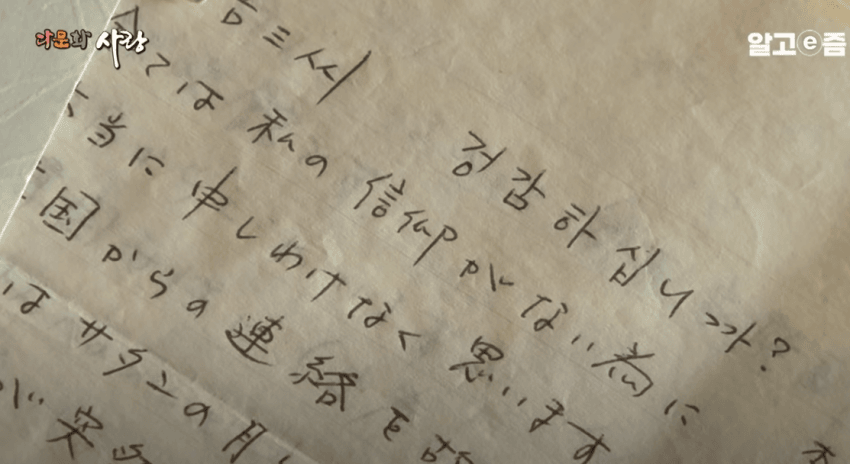 다문화 사랑
알고e즘
三씨 겅감하십니까?
ては 私の信仰がない為に
当に申しわけなく思います
国からの連絡を
はサタンの
が突